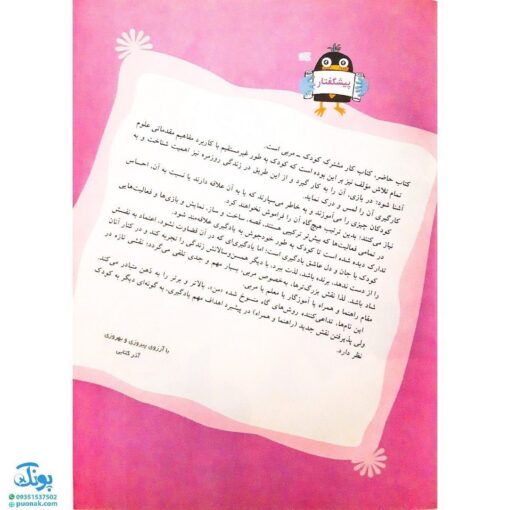 پیشگفتار
کتاب حاضر، کتاب کار مشترک کودک – مربی است.
تمام تلاش مؤلف نیز بر این بوده است که کودک به طور غیرمستقیم با کاربرد مفاهیم مقدماتی علوم
آشنا شود؛ در بازی، آن را به کار گیرد و از این طریق در زندگی روزمره نیز اهمیت شناخت و به
کارگیری آن را لمس و درک نماید.
کودکان چیزی را می‌آموزند و به خاطر می‌سپارند که یا به آن علاقه دارند یا نسبت به آن، احساس
نیاز می‌کنند؛ بدین ترتیب هیچ‌گاه، آن را فراموش نخواهند کرد.
در تمامی فعالیت‌ها که بیش‌تر ترکیبی هستند، قصه، ساخت و ساز، نمایش و بازی‌ها و فعالیت‌هایی
تدارک دیده شده است تا کودک به طور خودجوش به یادگیری علاقه‌مند شود.
کودک با جان و دل عاشق یادگیری است؛ اما یادگیری‌ای که در آن قضاوت نشود، اعتماد به نفسش
را از دست ندهد، برنده باشد، لذت ببرد، با دیگر همسن‌وسالانش زندگی را تجربه کند و در کنار آنان
شاد باشد. لذا نقش بزرگ‌ترها، به‌خصوص مربی، بسیار مهم و جدی تلقی می‌گردد؛ نقشی تازه در
مقام راهنما و همراه یا آموزگار یا معلم یا مربی.
این نام‌ها، تداعی‌کننده روش‌های گاه منسوخ شده «من» بالاتر و برتر را به ذهن متبادر می‌کند.
ولی پذیرفتن نقش جدید (راهنما و همراه) در پیشبرد اهداف مهم یادگیری، به گونه‌ای دیگر به کودک
نظر دارد.
با آرزوی پیروزی و بهروزی
آذر کتابی
پونک
09351537502
puonak.com